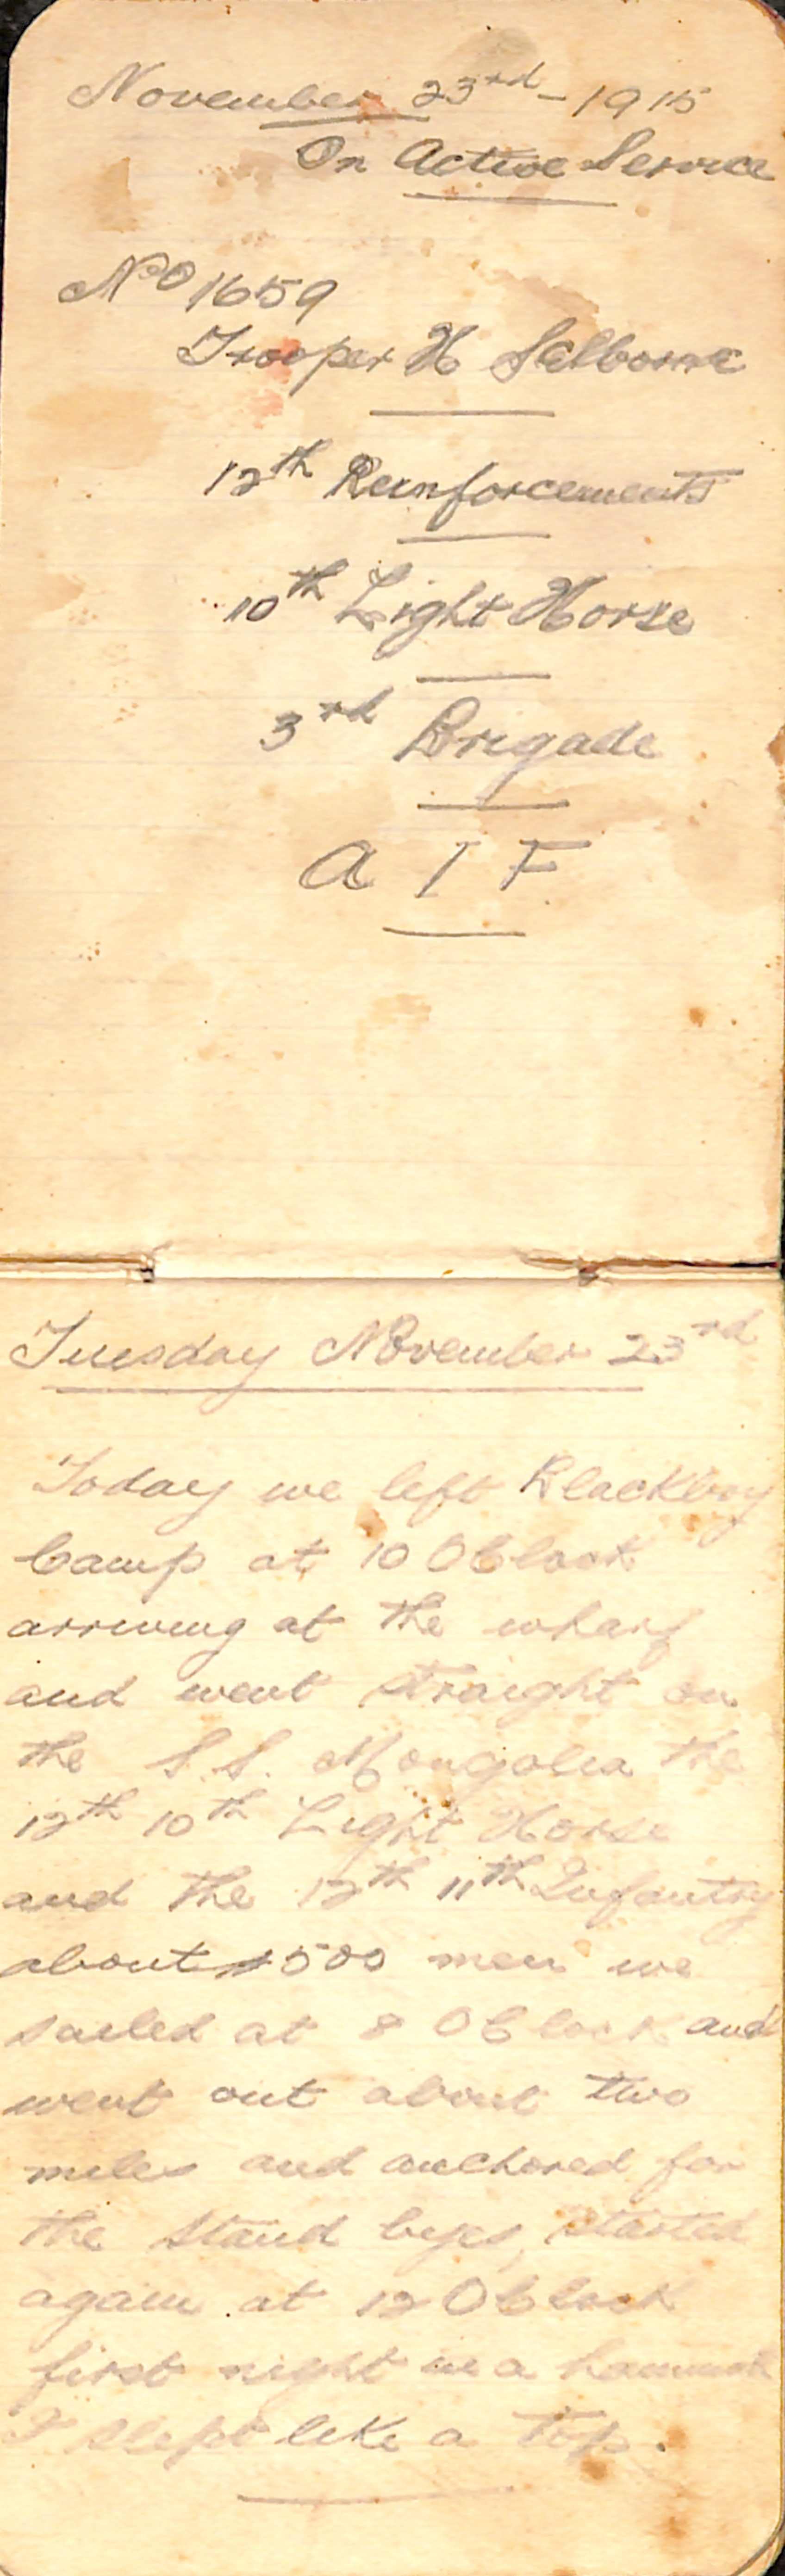 November 23rd - 1915
On Active Service
No 1659
Trooper H Selborne
12th Reinforcements
10th Light Horse
3rd Brigade
A I F.
Tuesday November 23rd
Today we left Blackboy
Camp at 10 OClock
arriving at the wharf
and went straight on
the S S. Mongolia the
12th 10th Light Horse
and the 12th 11th Infantry
about 500 men we
sailed at 8 OClock and
went out about two
miles and anchored for
the stand byes, started
again at 12 OClock
first night in a hammock
I slept like a top.